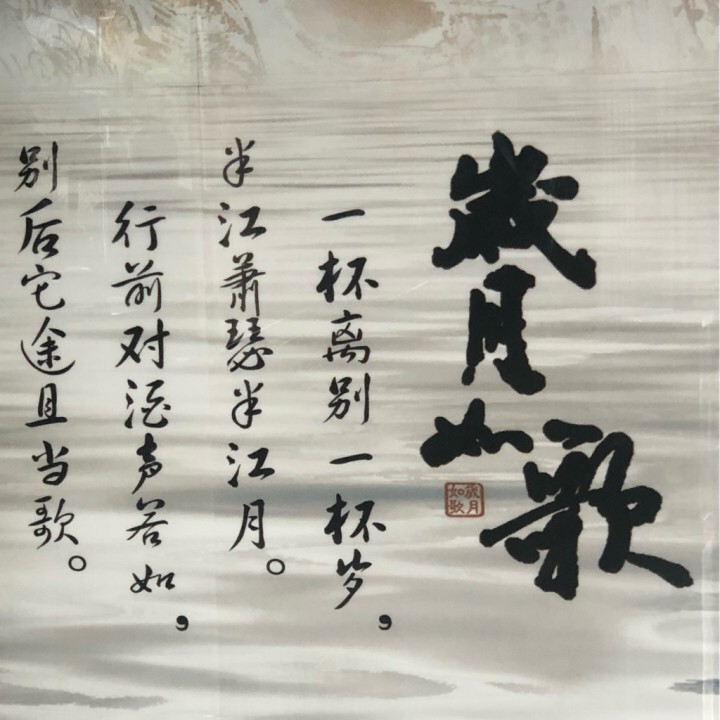 歲月如歌
歲月如歌
一杯离别一杯岁，
半江萧瑟半江月。
行前对酒声若如，
别后它途且当歌。